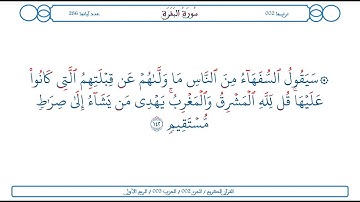 ترتيبها 002 سُورَةُ البَقَرَةِ عدد آياتها 286
۞ سَيَقُولُ ٱلسُّفَهَآءُ مِنَ ٱلنَّاسِ مَا وَلَّىٰهُمْ عَن قِبْلَتِهِمُ ٱلَّتِى كَانُوا۟
عَلَيْهَا ۚ قُل لِّلَّهِ ٱلْمَشْرِقُ وَٱلْمَغْرِبُ ۚ يَهْدِى مَن يَشَآءُ إِلَىٰ صِرَٰطٍ
مُّسْتَقِيمٍ ١٤٢
القرآن الكريم / الجزء 002 / الحزب 003 / الربع الأول